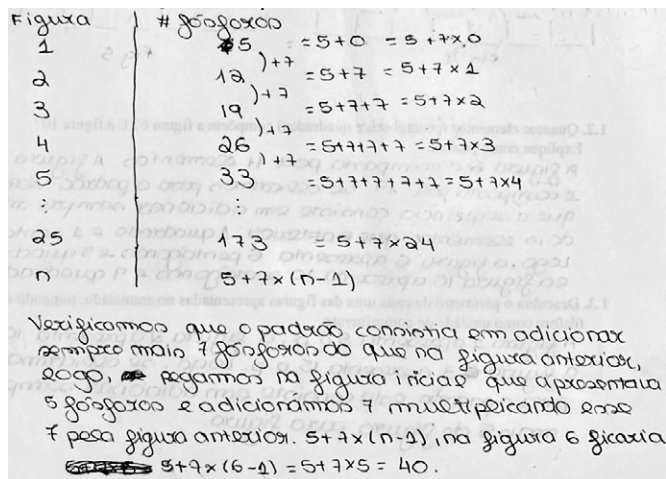 Figura # fósforos
1 5 =5+0 =5+7x0
)+7
2 12 =5+7 =5+7x1
)+7
3 19 =5+7+7 =5+7x2
)+7
4 26 =5+7+7+7 =5+7x3
)+7
5 33 =5+7+7+7+7=5+7x4
: :
25 173 =5+7x24
n 5+7x(n-1)
Verificamos que o padrão consistia em adicionar
sempre mais 7 fósforos do que na figura anterior,
logo pegamos na figura inicial que apresentava
5 fósforos e adicionámos 7 multiplicando esse
7 pela figura anterior. 5+7x(n-1), na figura 6 ficaria
5+7x(6-1)=5+7x5=40.